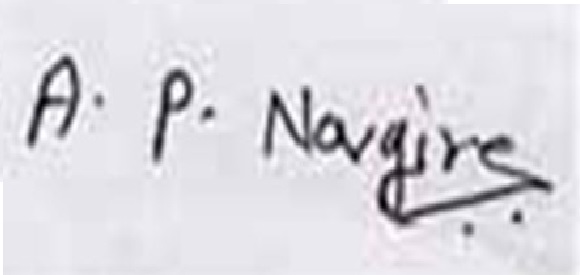 A. P. Navgire